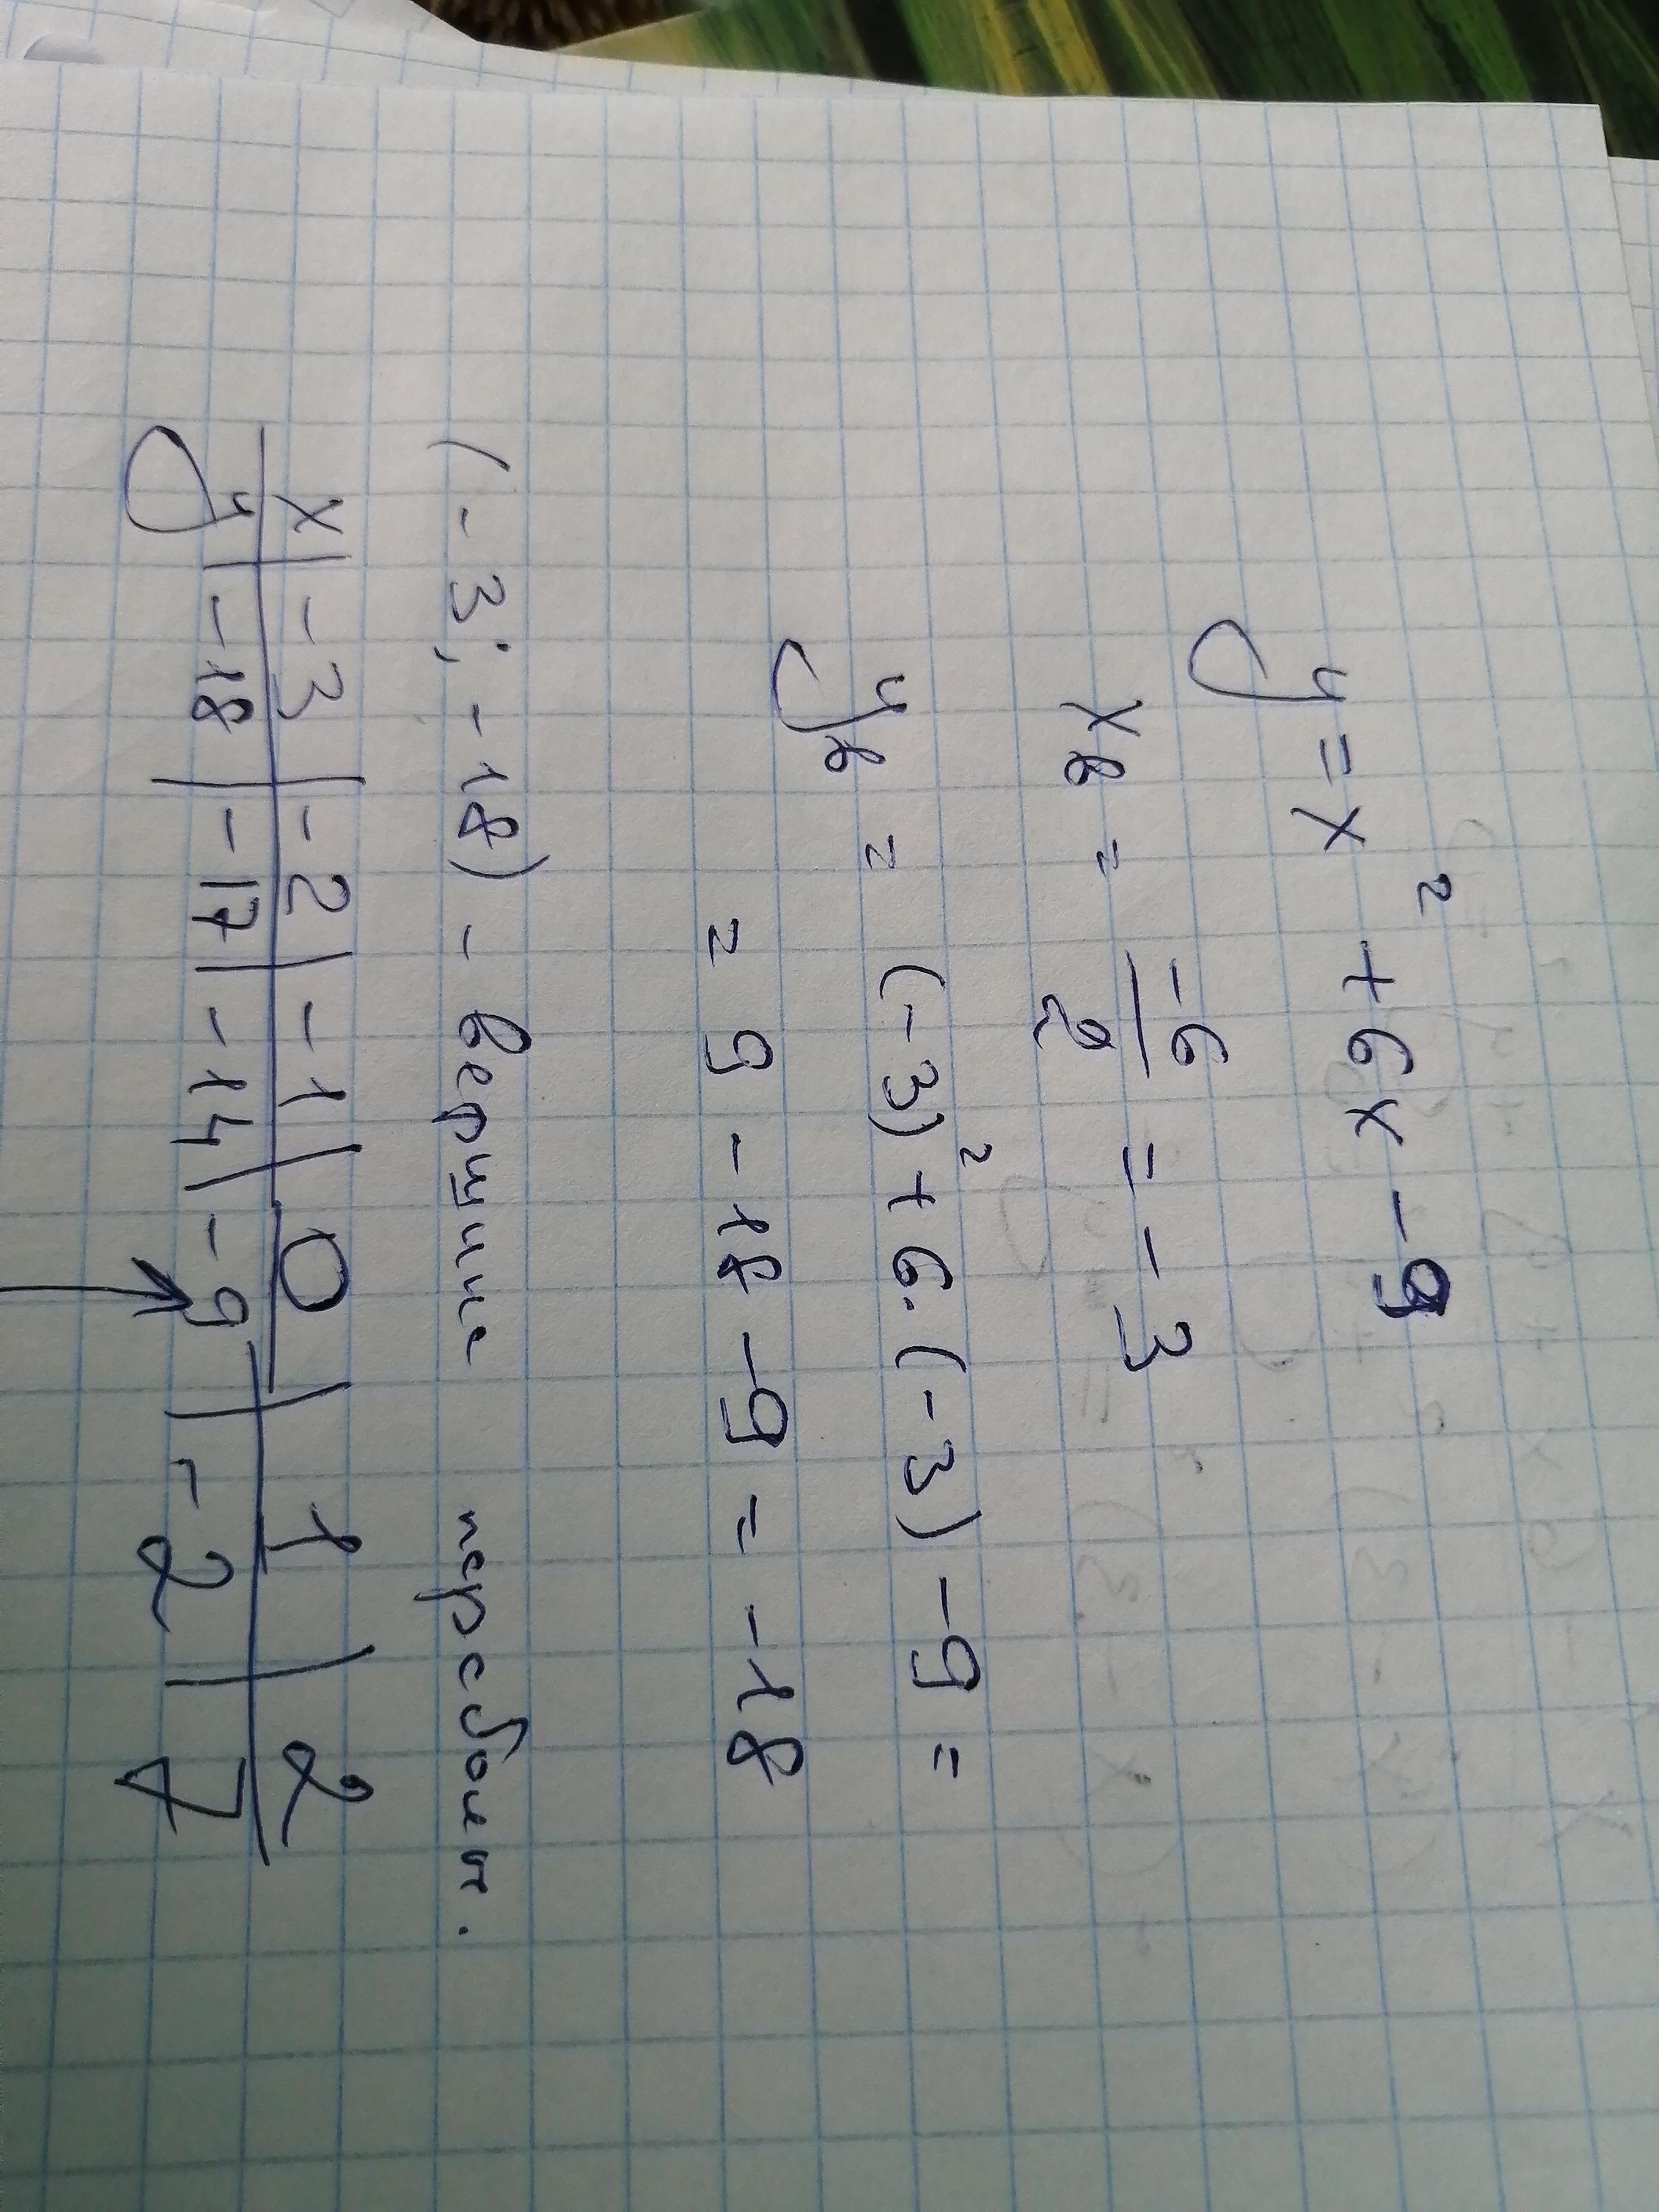 y = x² + 6x - 9
xв = -6/2 = -3
yв = (-3)² + 6·(-3) - 9 =
= 9 - 18 - 9 = -18
(-3; -18) - вершина парабол.
x | -3 | -2 | -1 | 0 | 1 | 2
y | -18 | -17 | -14 | -9 | -2 | 7